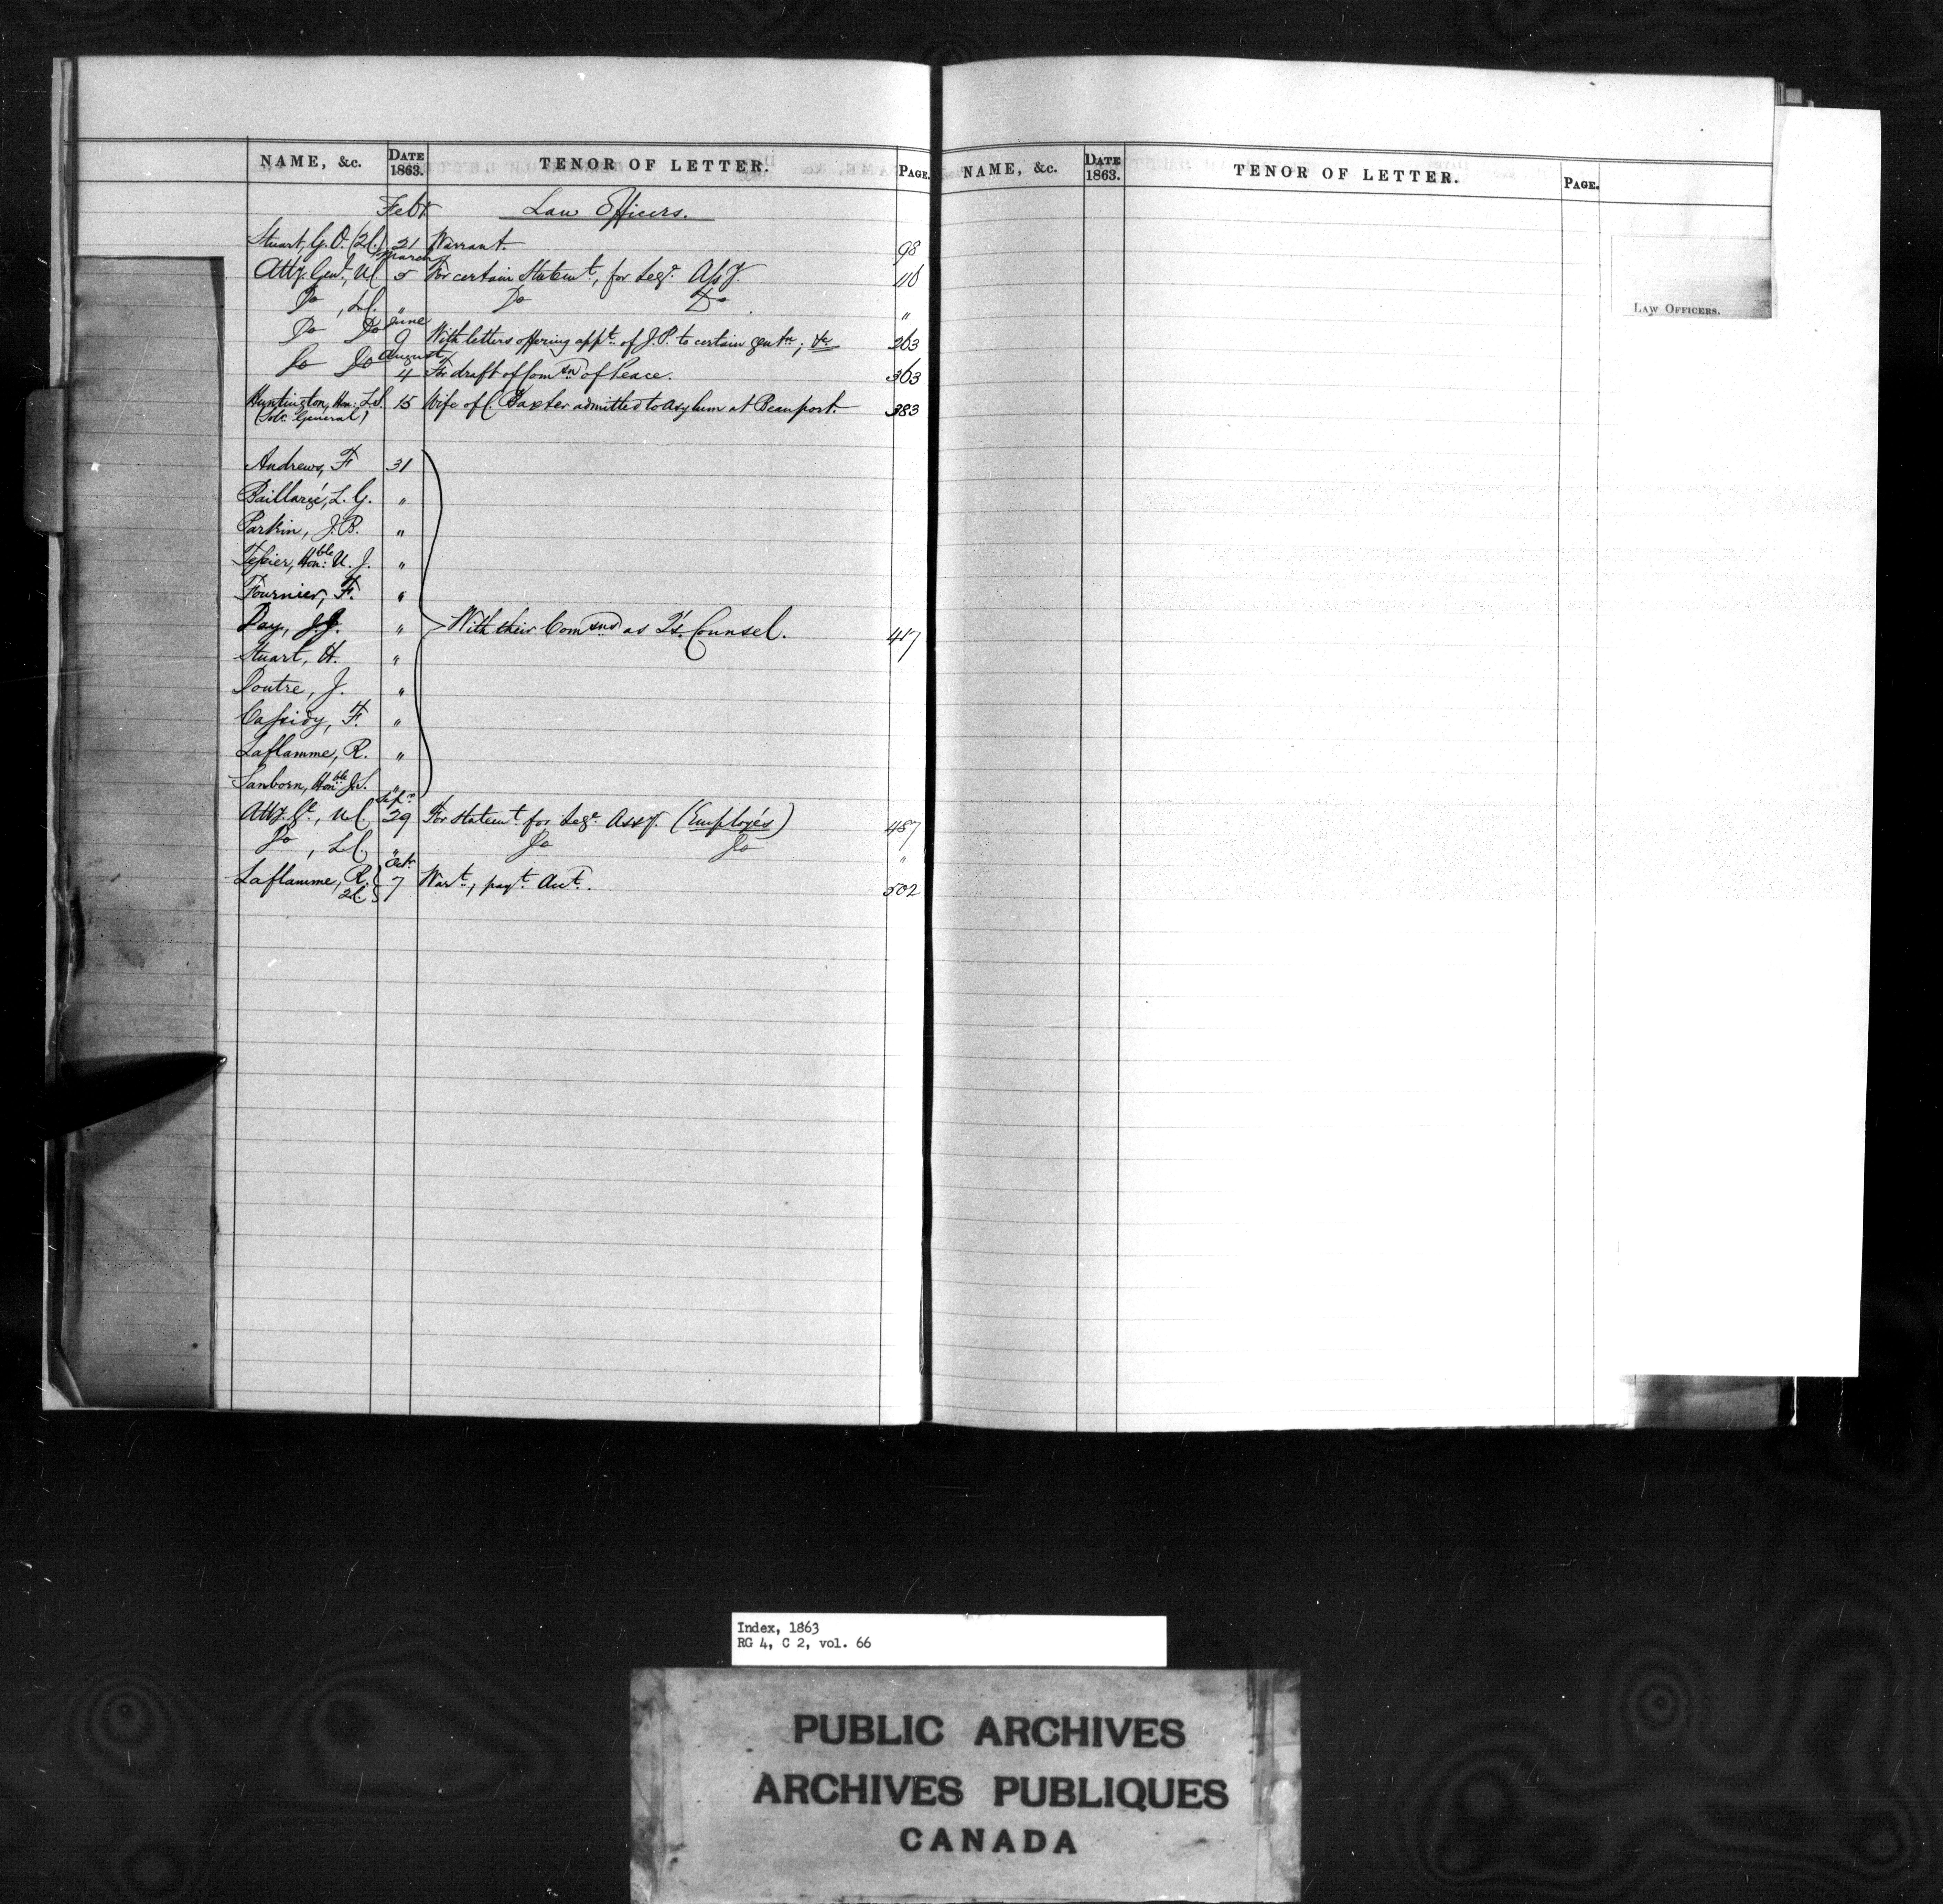 NAME, &c. DATE 1863. TENOR OF LETTER. PAGE.
Feby Law Officers.
Stuart, G. O. (2C.) 21 Warrant. 98
March
Atty. Genl., UC 5 For certain Statemt., for Legve. Assy. 110
Do , LC. " Do Do "
June
Do Do 9 With letters offering appt. of J.P. to certain gentn; &c 263
August
Do Do 4 For draft of Comsn of Peace. 363
Huntington, Hon: L.S. 15 Wife of C. Baxter admitted to Asylum at Beauport. 383
(Solr. General)
Andrews, F 31
Baillargé, L. G. "
Parkin, J. B. "
Tessier, Honble: U. J. "
Fournier, F. "
Day, J.J. " With their Comsns as Q's. Counsel. 417
Stuart, H. "
Doutre, J. "
Cassidy, F. "
Laflamme, R. "
Sanborn, Honble J.S. "
Sepr.
Atty. Gl., UC. 29 For statemt. for Legve. Assy. (Employés) 487
Do , LC. " Do Do "
Octr.
Laflamme, R. 7 Wart., payt. Acct. 502
2C.
NAME, &c. DATE 1863. TENOR OF LETTER. PAGE.
LAW OFFICERS.
Index, 1863
RG 4, C 2, vol. 66
PUBLIC ARCHIVES
ARCHIVES PUBLIQUES
CANADA